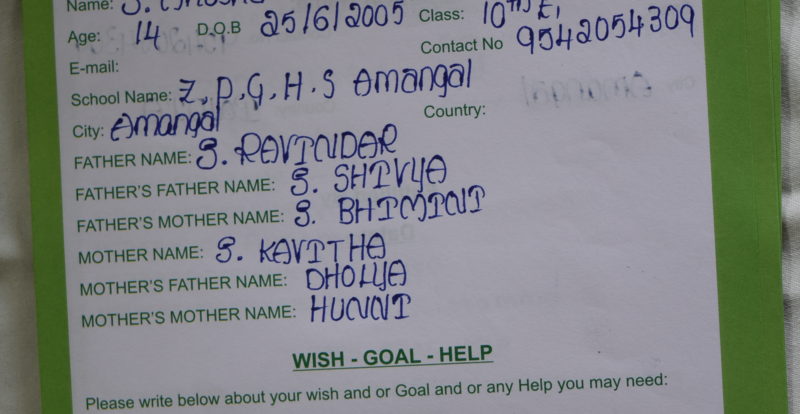 Name: S.
Age: 14 D.O.B 25/6/2005 Class: 10th E,
Contact No 9542054309
E-mail:
School Name: Z.P.G.H.S Amangal
City: Amangal Country:
FATHER NAME: S. RAVINDAR
FATHER'S FATHER NAME: S. SHIVYA
FATHER'S MOTHER NAME: S. BHIMINI
MOTHER NAME: S. KAVITHA
MOTHER'S FATHER NAME: DHOLYA
MOTHER'S MOTHER NAME: HUNNI
WISH - GOAL - HELP
Please write below about your wish and or Goal and or any Help you may need: